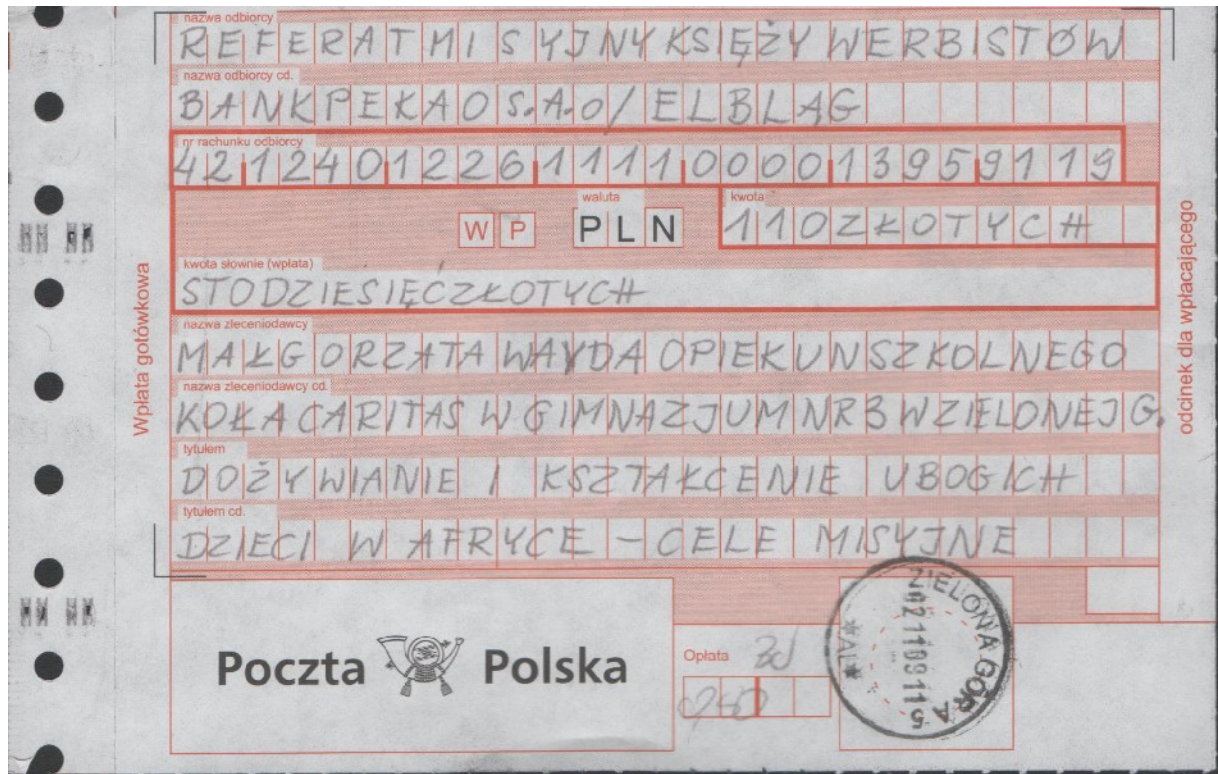 nazwa odbiorcy
REFERAT MISYJNY KSIĘŻY WERBISTÓW
nazwa odbiorcy cd.
BANK PEKAO S.A. O/ ELBLĄG
nr rachunku odbiorcy
42124012261111000013959119
waluta
kwota
W P
PLN
110ZŁOTYCH
kwota słownie (wpłata)
STODZIESIĘĆZŁOTYCH
nazwa zleceniodawcy
MAŁGORZATA WAYDA OPIEKUN SZKOLNEGO
nazwa zleceniodawcy cd.
KOŁA CARITAS W GIMNAZJUM NR 3 W ZIELONEJ G.
tytułem
DOŻYWIANIE I KSZTAŁCENIE UBOGICH
tytułem cd.
DZIECI W AFRYCE – CELE MISYJNE
Wpłata gotówkowa
odcinek dla wpłacającego
Poczta Polska
Opłata
ZIELONA GÓRA 5